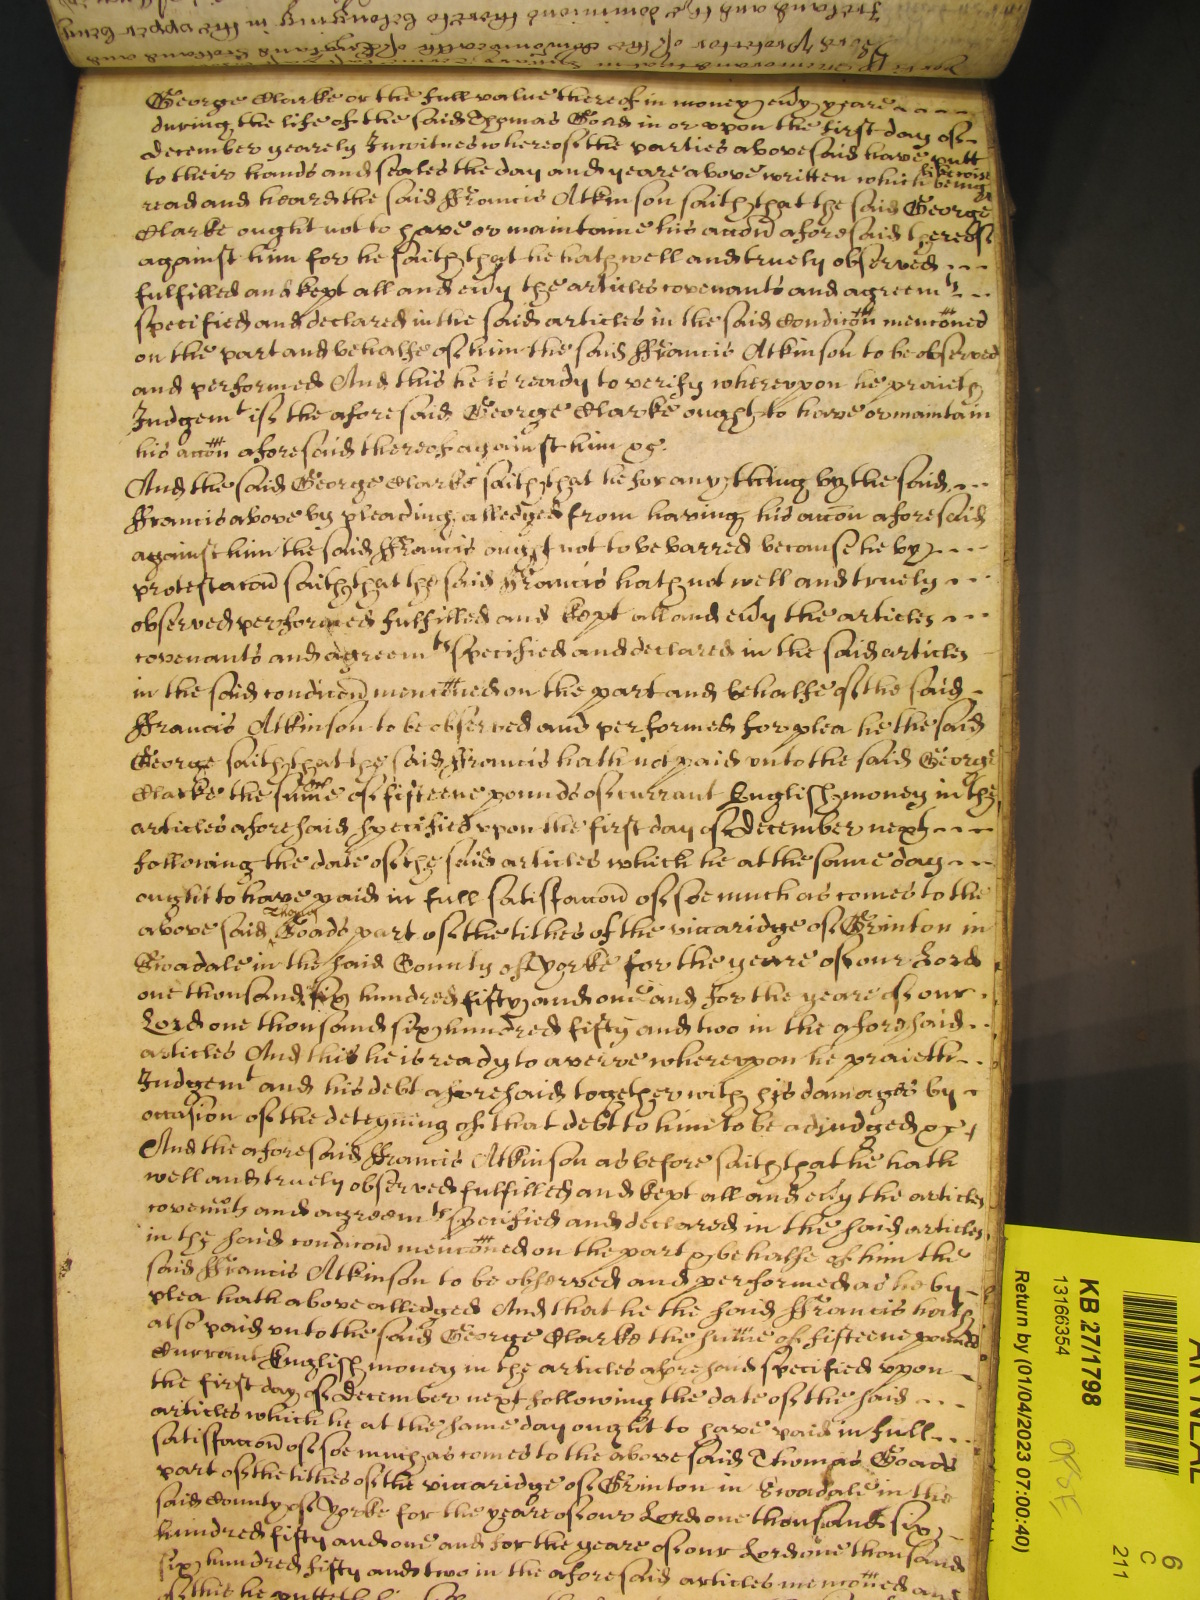 Lord Protector of the Comonwealth of England Scotland and
Ireland and the dominions thereto belonging in the upper bench
George Clarke or the full value thereof in money ev'y yeare
during the life of the said Thomas Goad in or upon the first day of
december yearely In witnes whereof the parties abovesaid have putt
to their hands and seales the day and yeare above written which being
likewise
read and heard the said Francis Atkinson saith that the said George
Clarke ought not to have or maintaine his accon aforesaid thereof
against him for he saith that he hath well and truely observed
fulfilled and kept all and ev'y the articles covenants and agreemts
specified and declared in the said articles in the said Condicon menconed
on the part and behalfe of him the said Francis Atkinson to be observed
and performed And this he is ready to verify whereupon he praieth
Judgemt if the aforesaid George Clarke ought to have or maintain
his accon aforesaid thereof against him &c.
And the said George Clarke saith that he for any thing by the said
Francis above by pleading alledged from having his accon aforesaid
against him the said Francis ought not to be barred because he by
protestacon saith that the said Francis hath not well and truely
observed performed fulfilled and kept all and ev'y the articles
covenants and agreemts specified and declared in the said articles
in the said condicon menconed on the part and behalfe of the said
Francis Atkinson to be observed and performed for plea he the said
George saith that the said Francis hath not paid unto the said George
Clarke the sume of fifteene pounds of currant English money in the
articles aforesaid specified upon the first day of december next
following the date of the said articles which he at the same day
ought to have paid in full satisfaccon of soe much as comes to the
above said Thomas Goads part of the tithes of the viccaridge of Grinton in
Swadale in the said County of Yorke for the yeare of our Lord
one thousand six hundred fifty and one and for the yeare of our
Lord one thousand six hundred fifty and two in the aforesaid
articles And this he is ready to averre whereupon he praieth
Judgemt and his debt aforesaid together with his damages by
occasion of the deteyning of that debt to him to be adjudged &c
And the aforesaid Francis Atkinson as before saith that he hath
well and truely observed fulfilled and kept all and ev'y the articles
covennts and agreemts specified and declared in the said articles
in the said condicon menconed on the part & behalfe of him the
said Francis Atkinson to be observed and performed as he by
plea hath above alledged And that he the said Francis hath
also paid unto the said George Clarke the sume of fifteene pounds
Currant English money in the articles aforesaid specified upon
the first day of december next following the date of the said
articles which he at the same day ought to have paid in full
satisfaccon of soe much as comes to the above said Thomas Goads
part of the tithes of the viccaridge of Grinton in Swadale in the
said County of Yorke for the yeare of our Lord one thousand six
hundred fifty and one and for the yeare of our Lord one thousand
six hundred fifty and two in the aforesaid articles menconed and
of this he putteth
KB 27/1798
13166354
Return by (01/04/2023 07:00:40)
6
C
211